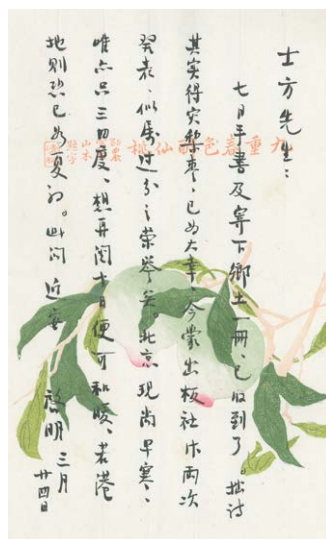 士方先生：
七日手書及寄下鄉土一冊、已收到了。拙詩
其实得灾梨棗、已为大幸、今蒙出板社作两次
發表、似属过分之荣譽矣。北京現尚早寒、
唯亦只三四度、想再閱十日便可和暖、若港
地則恐已如夏初。此问 近安 啓明 三月
廿四日
九重春色醉仙桃